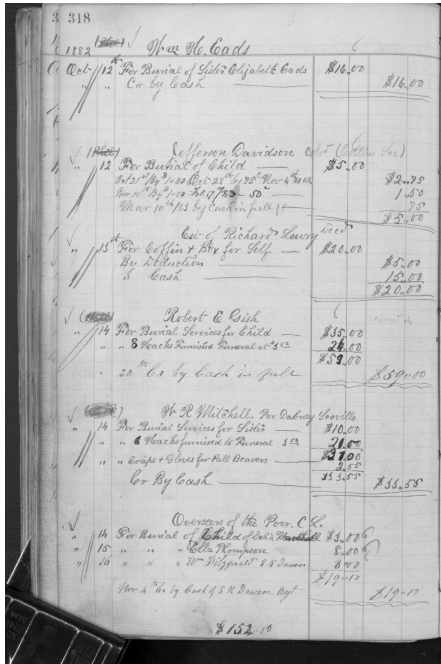 318
1882 Wm H. Eads
Oct 12th For Burial of Sister Elizabeth Eads $16.00
" " Cr by Cash $16.00
Jefferson Davidson Col'd
" 12 For Burial of Child $5.00
Oct 21st / By $1.00 Oct 28th by 75c Nov 4th $2.75
Nov 11th By $1.00 50c 1.50
Mar 10th /83 by Cash in full 75
$5.00
Est. of Richard Lowry Dec'd
" 15th For Coffin & Box for Self $20.00
By Deduction $5.00
" Cash 15.00
$20.00
Robert E.
" 14 For Burial Services for Child $35.00
" " 8 Hacks Furnished Funeral at 3.00 24.00
$59.00
" 20th Cr by Cash in full $59.00
W. R. Mitchell. Per Dabney
" 14 For Burial Services for Sister $10.00
" " Hacks furnished to Funeral 21.00
" " Crape & Gloves for Pall Bearers 2.55
$33.55
Cr By Cash $33.55
Overseers of the Poor. C. L.
" 14 For Burial of Child of Delia Marshall $5.00
" 15 " " " Ella Thompson 8.00
" " " " Wm Fitzgerald
$19.00
Nov 4th Cr by Cash of S R Dawson. Agt $19.00
$152.00